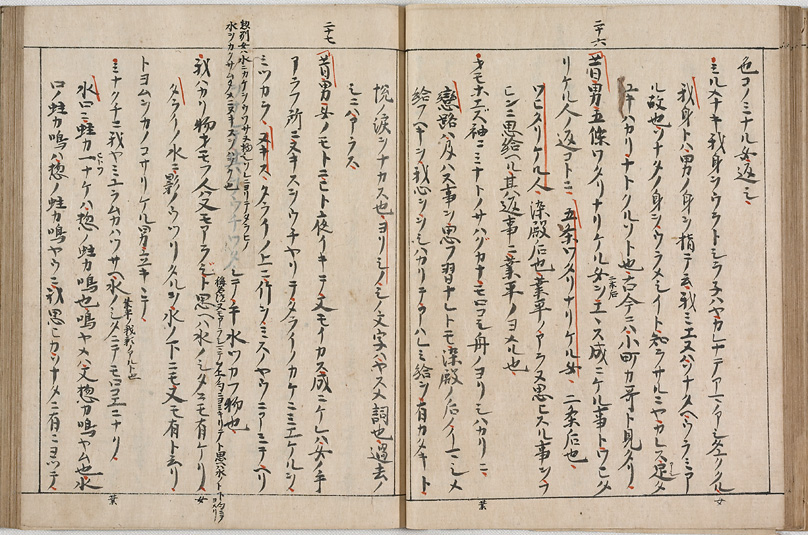 也コノミナル女返シ
ミルメナキ我身ヲウラトシラネハヤカレナテアマノ足タユククル 女
我身トハ男ノ身ヲ指テ云我ミエヌハソナタヘウラミア
ル故也ソナタノ身ヲウラメシイト知ラサルミヤカレス足タ
ユキハカリナトクルソト也古今ニハ小町カ哥ト見タリ
二十六
昔男五條ワタリナリケル女ヲエエス成ニケル事トワヒタ
二条后
リケル人ノ返コトニ 五条ワタリナリケル女 二条后也
ワヒタリケル人 染殿后也業平ノアラヌ思ヒスル事ヲフ
ヒンニ思給ヘル其返事ニ業平ノヨメル也
オモホエズ袖ニミナトノサハグカナモロコシ舟ノヨリシハカリニ 業
戀路ハ及ハヌ事ヲ思フ習ナレトモ染殿ノ后ノ
給フヘキヲ我心ヲヲシハカリテ レミ給ヲ有カタキト
悦ノ涙ヲナカス也ヨリシノシノ文字ハヤスメ詞也過去ノ
シニハアラス
二十七
昔男女ノモトニヒト夜イキテ又モイカス成ニケレハ女ノ手
アラフ所ニヌキスヲウチヤリテタライノカケニミエケルヲ
ミツカラ ヌキス タライノ上ニ竹ヲミスノヤウニアミテヘリ
シテ手水ツカフ物也
我ハカリ物オモフ人ハ又モアラジト思ヘハ水ノシタニモ有ケリ 女
タライノ水ニ影ノウツリタルヲ水ノ下ニモ又モ有ト云リ
トヨムヲカノコサリケル男立キヽテ
ミナクチニ我ヤミユラムカハツサヘ水ノシタニテモロコエニナク 業
水口ニ蛙カ一ナケハ惣ノ蛙カ鳴也鳴ヤメハ又惣カ鳴ヤム也水
口ノ蛙カ鳴ハ惣ノ蛙カ鳴ヤウニ我思ヒカソナタニ有ニヨツテ